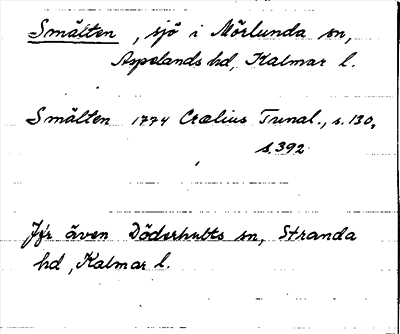 Smälten, sjö i Mörlunda sn,
Aspelands hd, Kalmar l.
Smälten 1774 Crælius Tunal., s. 130,
s. 392
Jfr även Döderhults sn, Stranda
hd, Kalmar l.